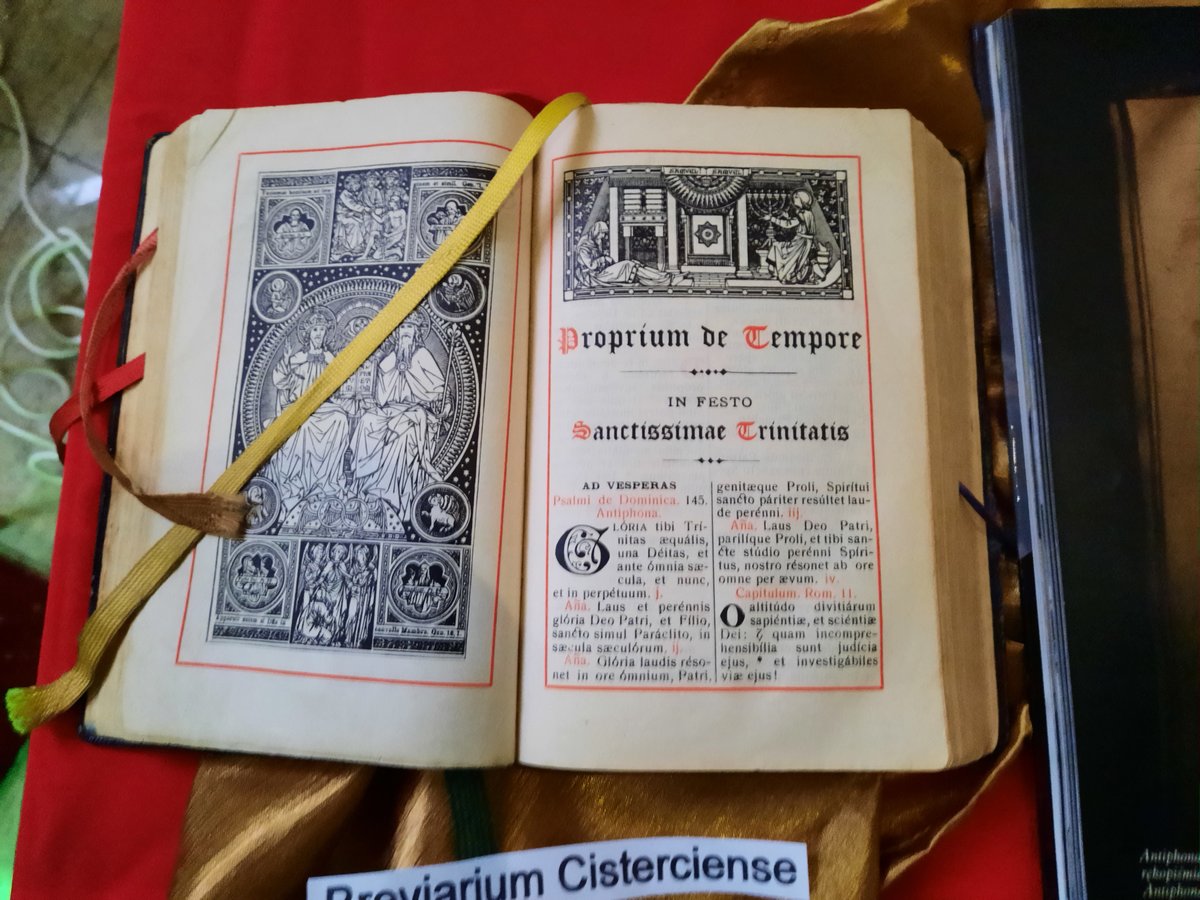 SAMVEL SAMVEL
Proprium de Tempore
IN FESTO
Sanctissimae Trinitatis
AD VESPERAS
Psalmi de Dominica. 145.
Antiphona.
GLÓRIA tibi Trí-
nitas æquális,
una Déitas, et
ante ómnia sæ-
cula, et nunc,
et in perpétuum. j.
Aña. Laus et perénnis
glória Deo Patri, et Fílio,
sancto simul Paráclito, in
sæcula sæculórum. ij.
Aña. Glória laudis réso-
net in ore ómnium, Patri,
genitæque Proli, Spirítui
sancto páriter resúltet lau-
de perénni. iij.
Aña. Laus Deo Patri,
parilíque Proli, et tibi san-
cte stúdio perénni Spíri-
tus, nostro résonet ab ore
omne per ævum. iv.
Capitulum. Rom. 11.
O altitúdo divitiárum
sapiéntiæ, et sciéntiæ
Dei: ⁊ quam incompre-
hensibília sunt judícia
ejus, * et investigábiles
viæ ejus!
Breviarium Cisterciense
Antiphona
rękopiśmie
Antiphona